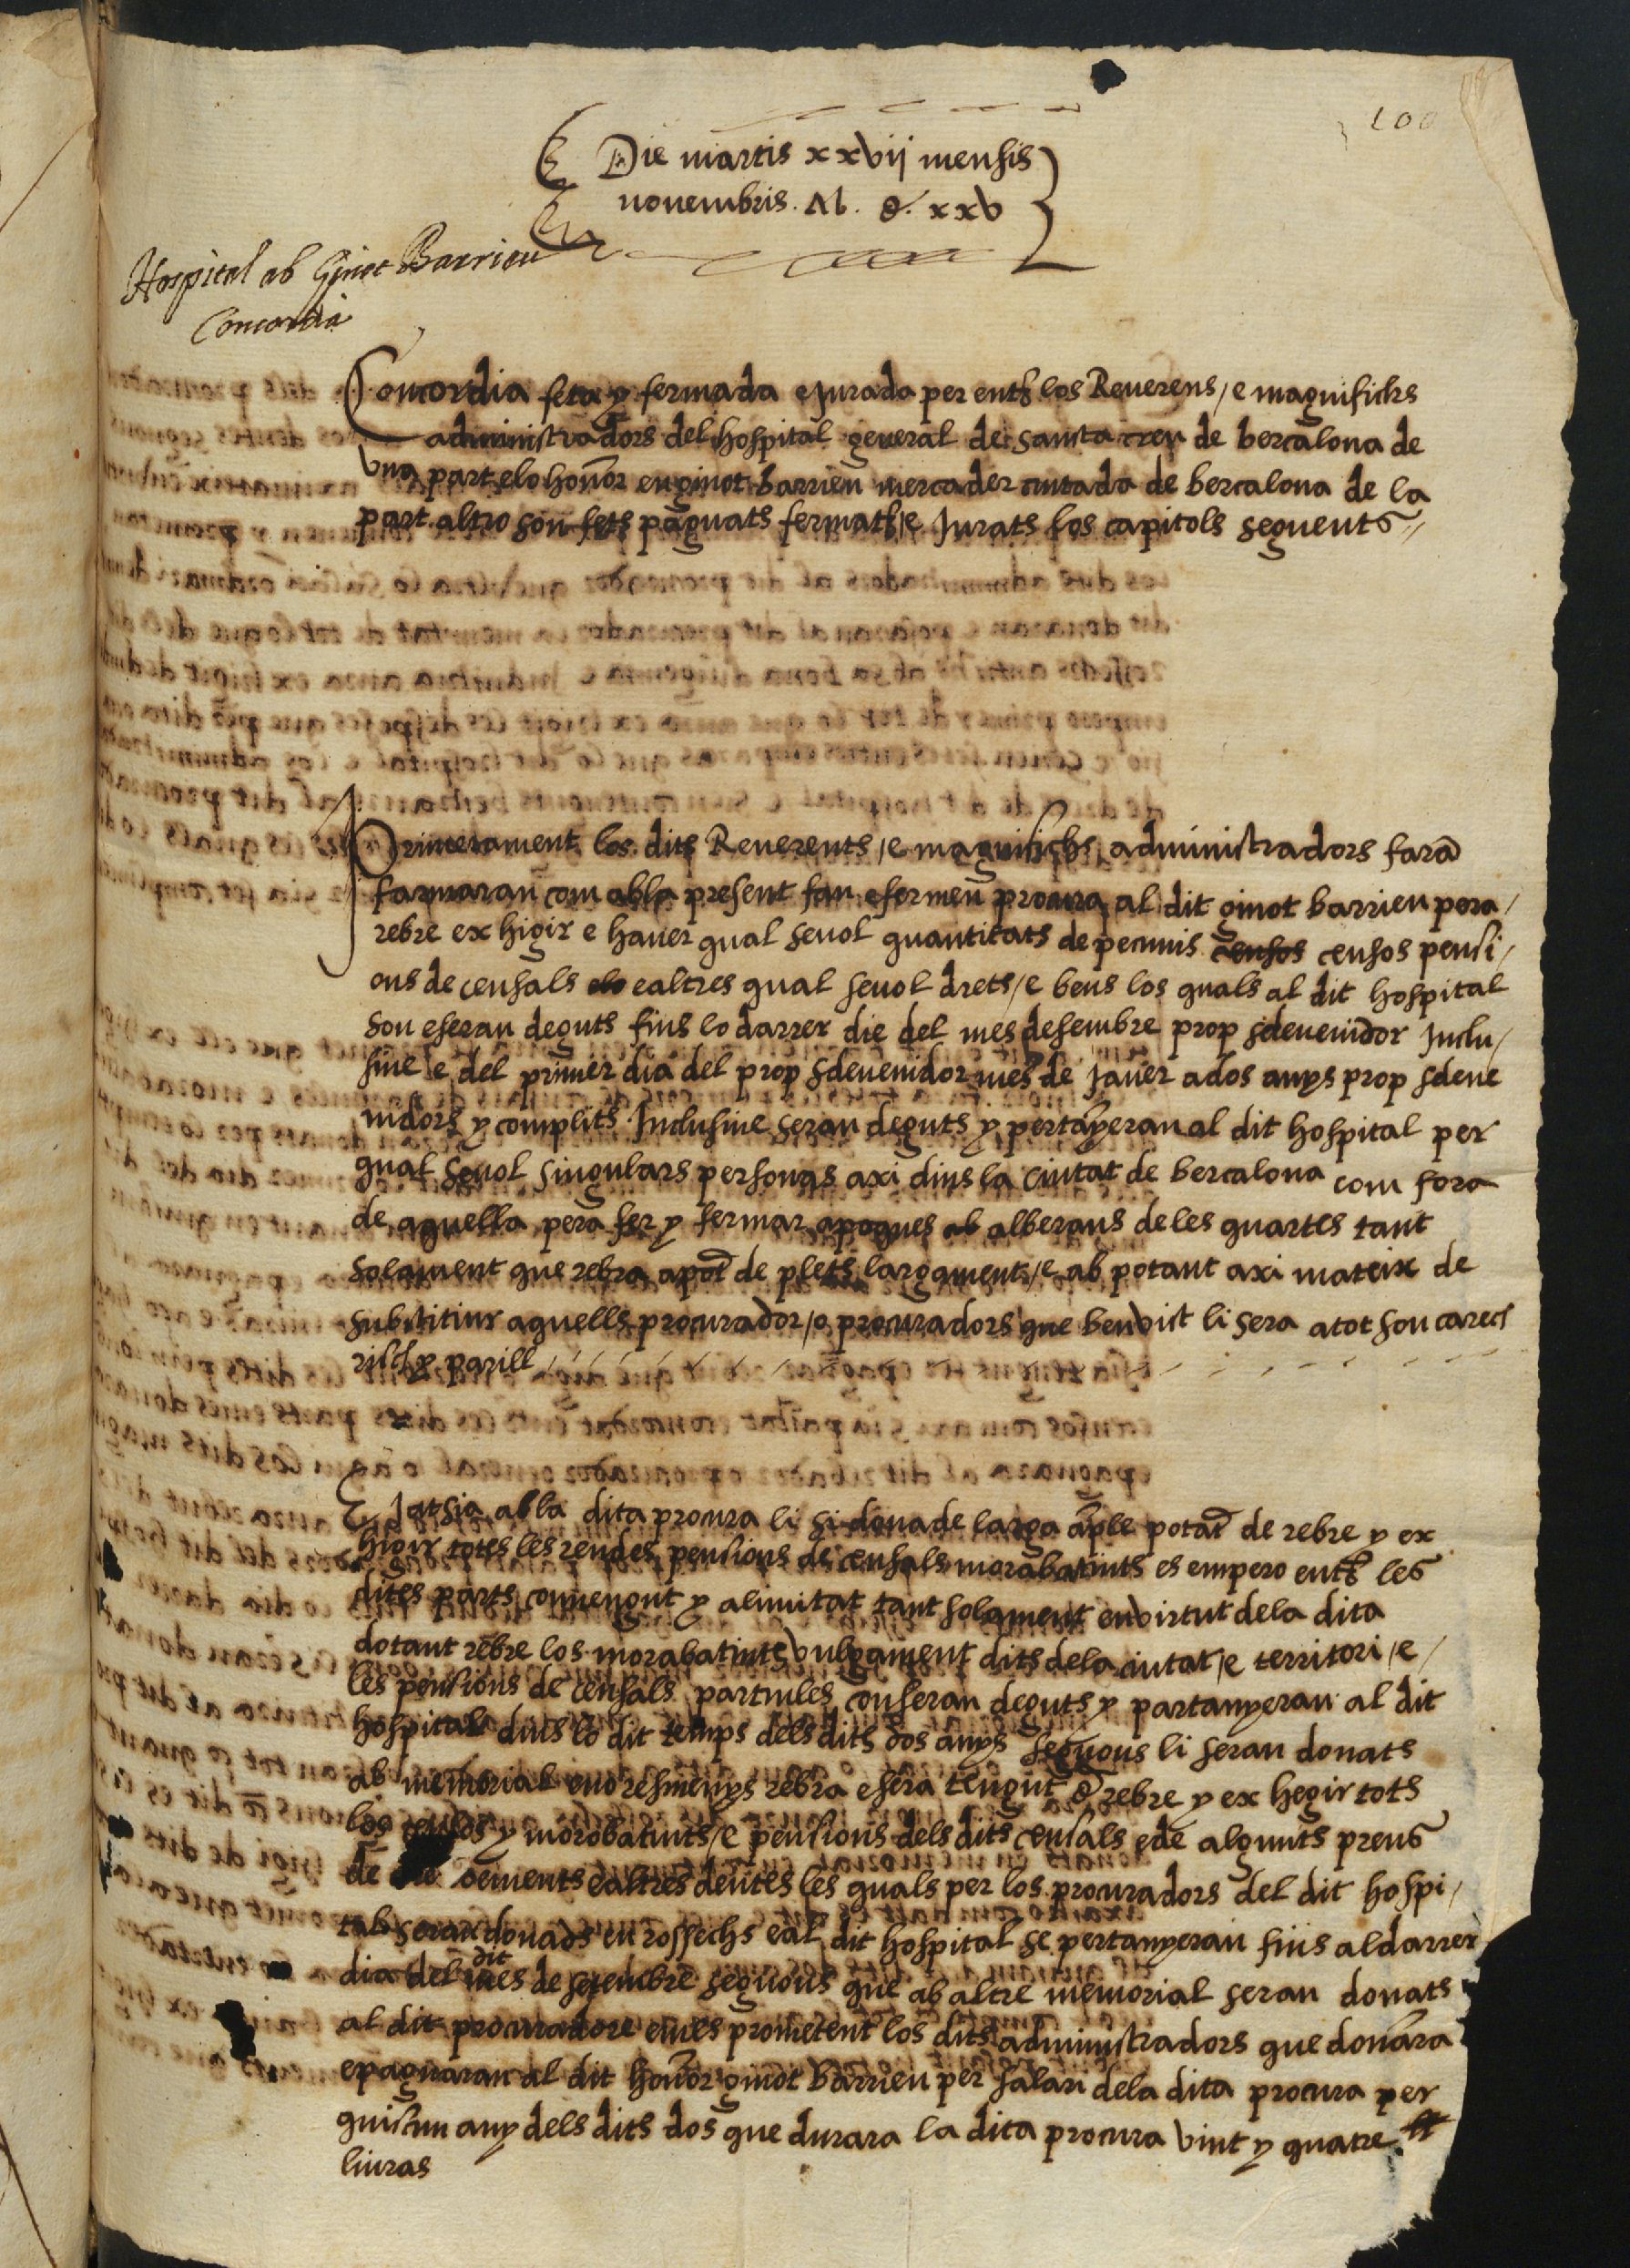 100
Die martis xxvij mensis
novembris. M. d. xxv
Hospital ab Ginot Barrieu
Concordia
Concordia feta y fermada e Jurada per entre los Reverens / e magnifichs
administradors del hospital general de sancta creu de bercalona de
una part e lo honor en ginot barrieu mercader ciutada de bercalona de la
part altra son fets paguats fermats / e Jurats los capitols seguents //
Primerament los dits Reverents / e magnifichs administradors fara
farmaran com ab la present fan e fermen procura al dit ginot barrieu pera /
rebre ex higir e haver qual sevol quantitats de pecunis censos censos pensi /
ons de censals e altres qual sevol drets / e bens los quals al dit hospital
son e seran deguts fins lo darrer die del mes desembre prop sdevenidor Inclu /
sive / e del primer dia del prop sdevenidor mes de Janer a dos anys prop sdeve
nidors y complits Inclusive seran deguts y pertanyeran al dit hospital per
qual sevol singulars personas axi dins la ciutat de bercalona com fora
de aquella pera fer y fermar apoques ab alberans de les quartes tant
solament que rebra a pot de plets largament / e ab potant axi mateix de
substituir aquells procurador / o procuradors que ben vist li sera a tot son carech
risch y parill
E Jatsia ab la dita procura li si dona de larga ample potat de rebre y ex
higir totes les rendes pensions de censals morabatints es empero entre les
dites parts convengut y alimitat tant solament en virtut de la dita
dotant rebre los morabatints vulgament dits de la ciutat / e territori / e /
les pensions de censals particules con seran deguts y partanyeran al dit
hospital dins lo dit temps dels dits dos anys seguons li seran donats
ab memorial eno resmenys rebra e sera tengut de rebre y ex hegir tots
los censos y morobatints / e pensions dels dits censals e de alguns preus
de oements e altres deutes les quals per los procuradors del dit hospi /
tal seran donads en rossechs e al dit hospital se pertanyeran fins al darrer
dia del dit mes de setembre seguons que ab altre memorial seran donats
al dit procuradore e mes prometent los dits administradors que donara
e paguaran al dit honor ginot barrieu per salari de la dita procura per
quiscun any dels dits dos que durara la dita procura vint y quatre ll
liuras